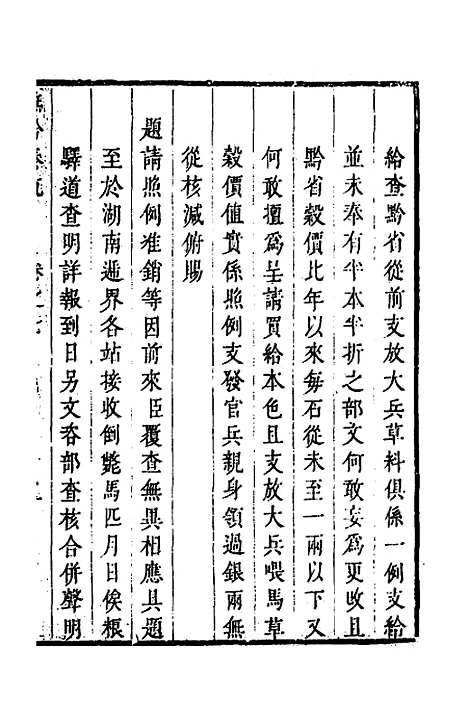 給查黔省從前支放大兵草料俱係一例支給
並未奉有半本半折之部文何敢妄為更收且
黔省穀價比年以來每石從未至一兩以下又
何敢擅為呈請買給本色且支放大兵喂馬草
穀價值實係照例支發官兵親身領過銀兩無
從核減俯賜
題請照例准銷等因前來臣覆查無異相應具題
至於湖南遞界各站接收倒斃馬匹月日俟糧
驛道查明詳報到日另文咨部查核合併聲明